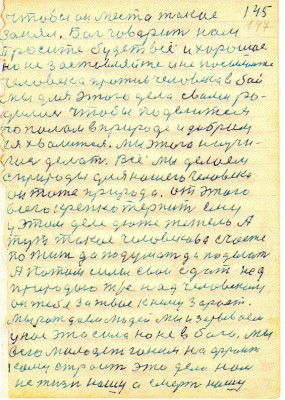 чтобы он места такое 145
занял. Бог говорит нам 147
просите будет всё и хорошое
но не заставляйте и не посылайте
человека против человека в бой
мы для этого дела с вами ро-
дились чтобы подвигом
то полам в природе и добром
хвалится. мы этого и
делат. Всё мы делаем
с природы для нашего человека
он тоже природа. от этого
всего крепко терпит ему
у этом деле тоже житель А
тут такое человека счастье
пожит да подумат да поделат
А потом силы свои сдат над
природою тоже над человеком
он тебя за твое в нигу зароет.
Мы рождаем людей мы и зарываем
у нас эта сила но не в бога. мы
всю молодеж гоним на фронт
кому строит это дело нам
не жизн нашу а смерт нашу